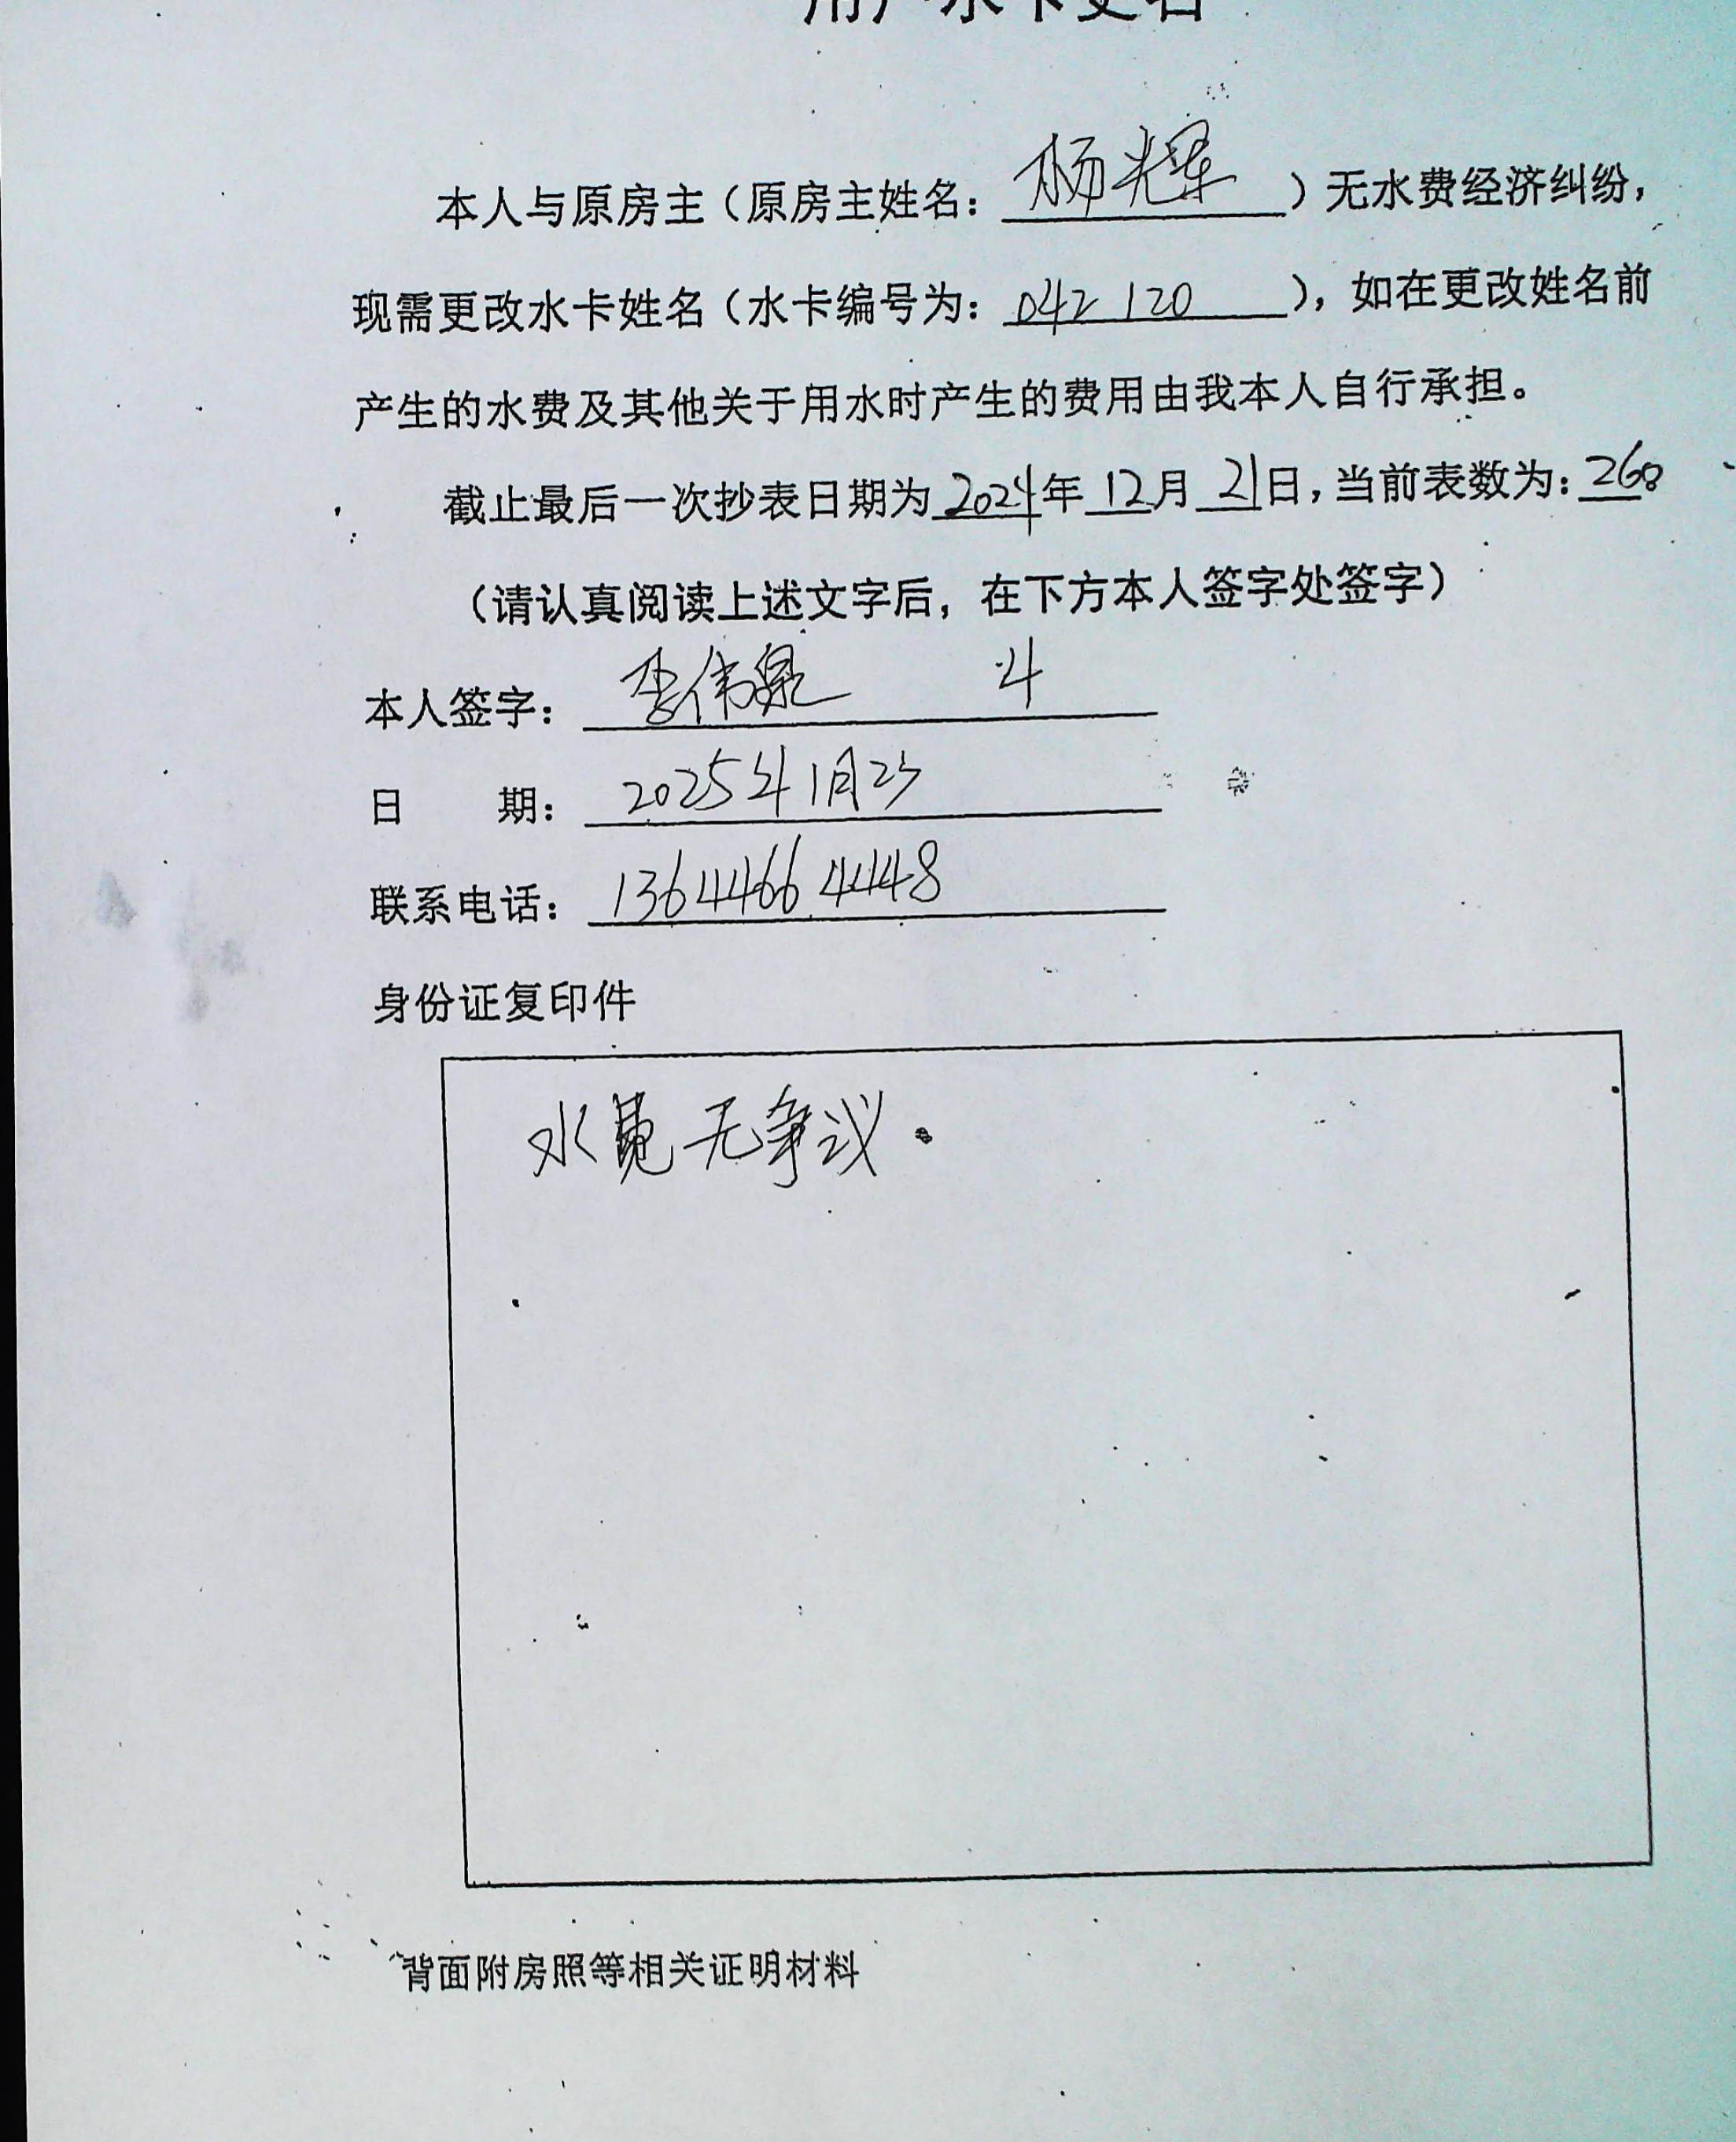 用户水卡更名
本人与原房主（原房主姓名：杨辉）无水费经济纠纷，
现需更改水卡姓名（水卡编号为：042120），如在更改姓名前
产生的水费及其他关于用水时产生的费用由我本人自行承担。
截止最后一次抄表日期为2024年12月21日，当前表数为：260
（请认真阅读上述文字后，在下方本人签字处签字）
本人签字：李伟泉
日　　期：2025年1月23
联系电话：13644664448
身份证复印件
水费无争议。
背面附房照等相关证明材料